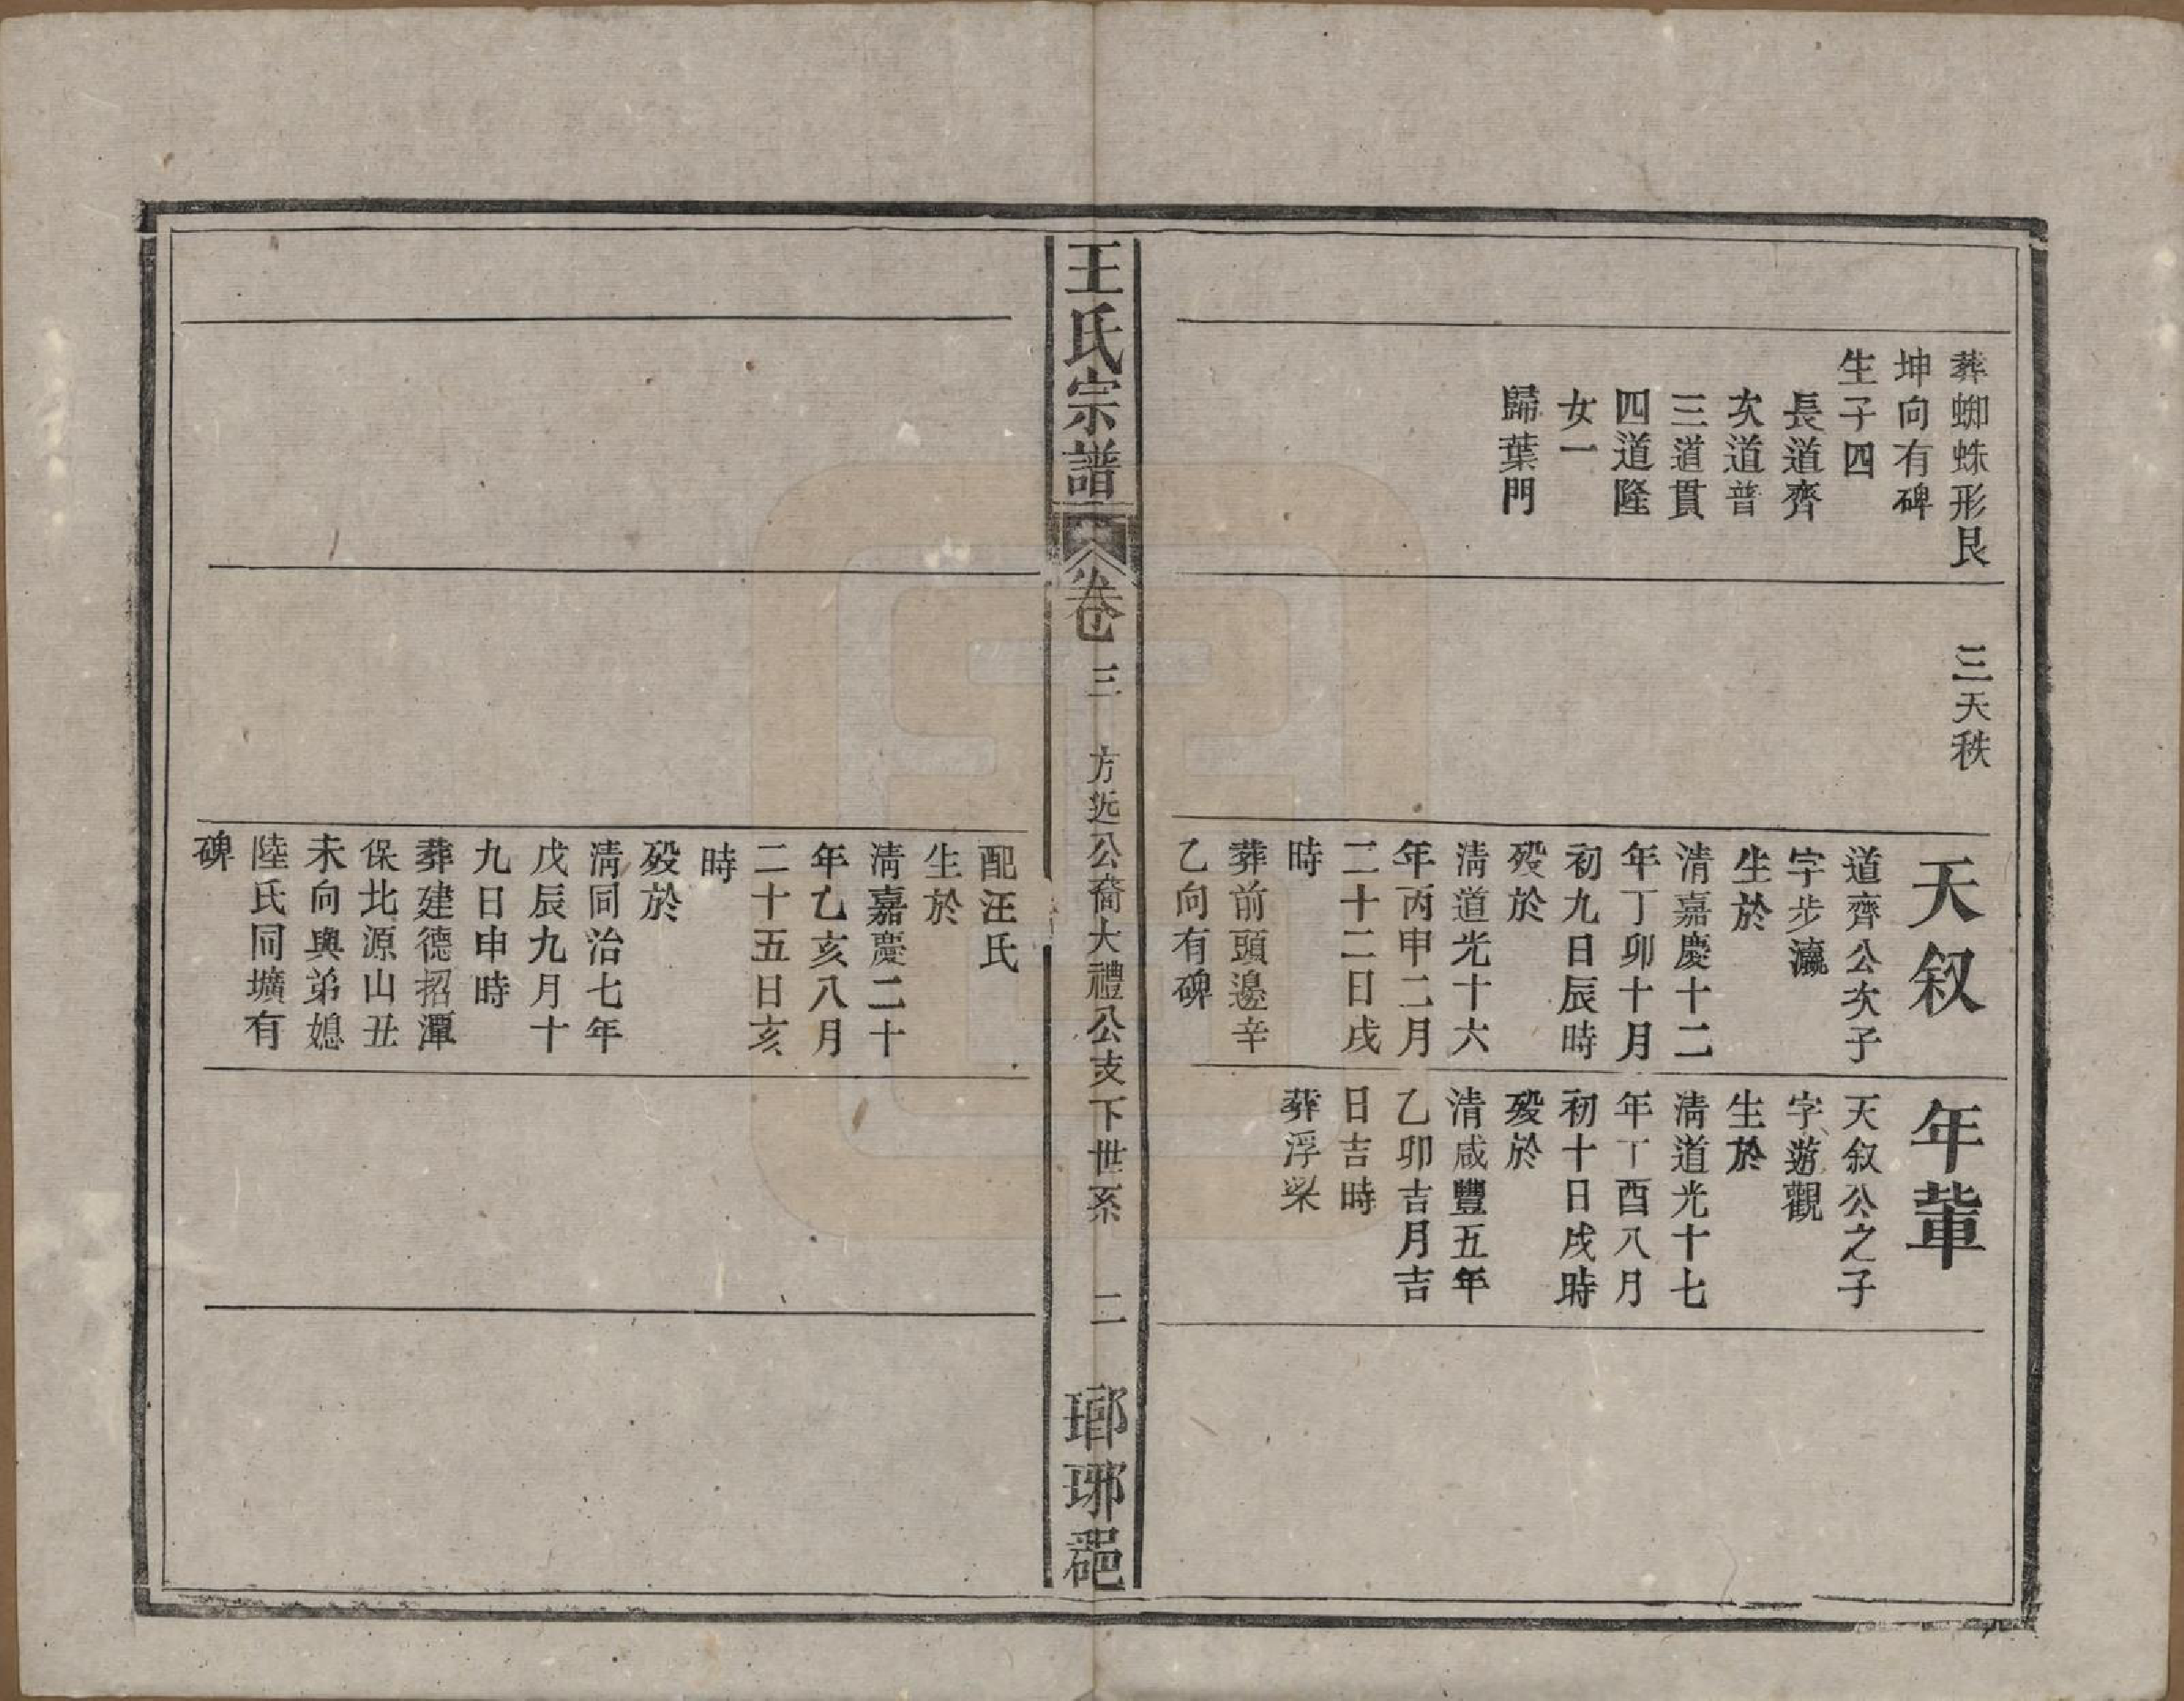 葬蜘蛛形艮
坤向有碑
生子四
長道齊
次道普
三道貫
四道隆
女一
歸葉門
三天秩
天叙
道齊公次子
字步瀛
生於
清嘉慶十二
年丁卯十月
初九日辰時
殁於
清道光十六
年丙申二月
二十二日戌
時
葬前頭邊辛
乙向有碑
年輩
天叙公之子
字遊觀
生於
清道光十七
年丁酉八月
初十日戌時
殁於
清咸豐五年
乙卯吉月吉
日吉時
葬浮梁
王氏宗譜
卷三
方远公裔大禮公支下世系
二
瑯琊
配汪氏
生於
清嘉慶二十
年乙亥八月
二十五日亥
時
殁於
清同治七年
戊辰九月十
九日申時
葬建德招潭
保北源山丑
未向與弟媳
陸氏同壙有
碑